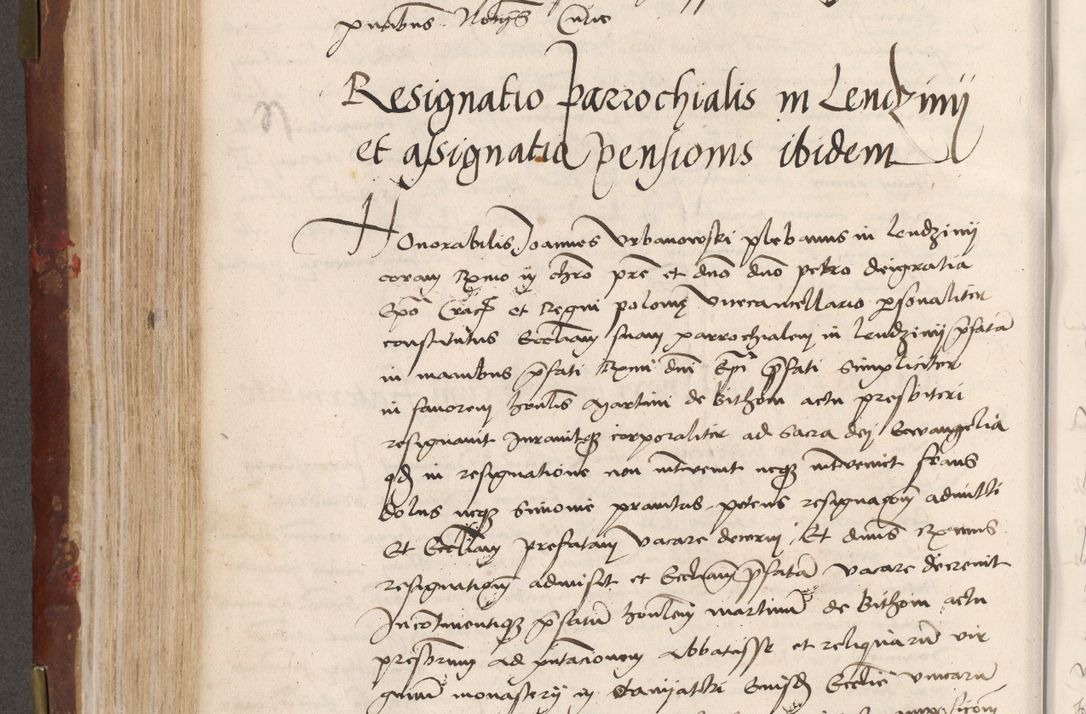 Resignatio parrochialis in Lendzinij
et assignatio pensionis ibidem
Honorabilis Joannes Vrbanowski plebanus in Lendzinij
coram Rmo in chro pre et dno dno petro dei gratia
Epo Crac et Regni polonie Vicecancellario personaliter
constitutus Eccliam suam parrochialem in Lendzinij prefata
in manibus prefati Rmi dni Epi prefati simpliciter
in favorem honlis Martini de Bithom actu presbiteri
resignavit Juravitque corporaliter ad Sacra dei Ewangelia
qd in resignatione non intervenit neque interveniet fraus
dolus neque simonie pravitas petens resignacom admitti
Et Eccliam prefatam vacare decerni Et dnus Rmus
resignationem admisit et Eccliam prefatam vacare decrevit
Incontinentique prefatum honlem martinum de Bithom actu
presbrum ad pntacionem Abbatisse et reliquarum vir
ginum monasterij in Eccie vacatu